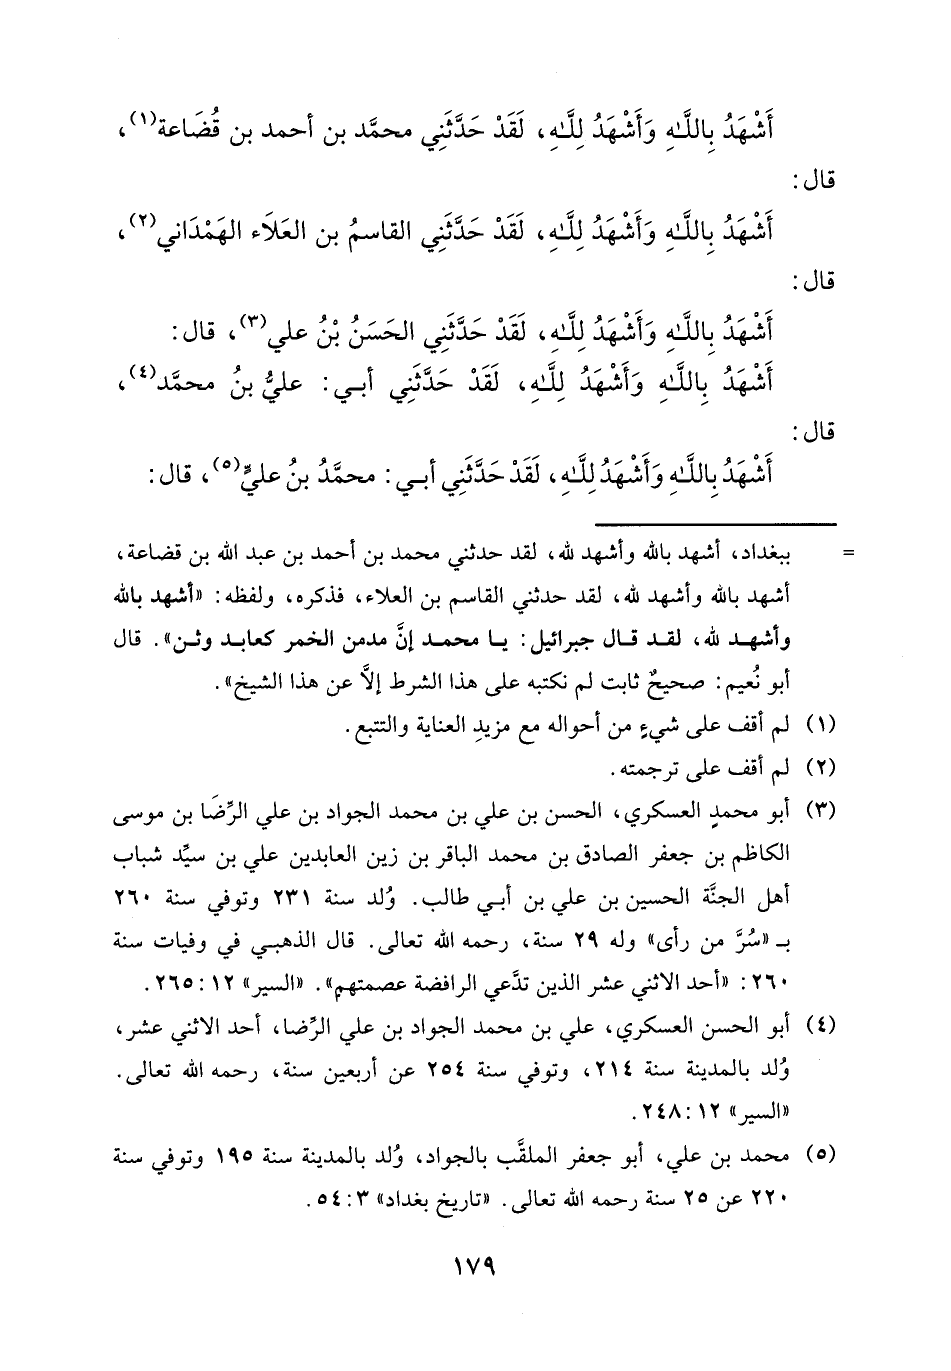 أَشْهَدُ بِاللَّـهِ وَأَشْهَدُ لِلَّـهِ، لَقَدْ حَدَّثَنِي محمَّد بن أحمد بن قُضَاعة(١)،
قال:
أَشْهَدُ بِاللَّـهِ وَأَشْهَدُ لِلَّـهِ، لَقَدْ حَدَّثَنِي القاسمُ بن العَلَاَء الهَمْدَاني(٢)،
قال:
أَشْهَدُ بِاللَّـهِ وَأَشْهَدُ لِلَّـهِ، لَقَدْ حَدَّثَنِي الحَسَنُ بْنُ علي(٣)، قال:
أَشْهَدُ بِاللَّـهِ وَأَشْهَدُ لِلَّـهِ، لَقَدْ حَدَّثَنِي أبـي: عليُّ بنُ محمَّد(٤)،
قال:
أَشْهَدُ بِاللَّـهِ وَأَشْهَدُ لِلَّـهِ، لَقَدْ حَدَّثَنِي أبـي: محمَّدُ بنُ عليٍّ(٥)، قال:
= ببغداد، أشهد بالله وأشهد لله، لقد حدثني محمد بن أحمد بن عبد الله بن قضاعة،
أشهد بالله وأشهد لله، لقد حدثني القاسم بن العلاء، فذكره، ولفظه: «أشهد بالله
وأشهـد لله، لقـد قـال جبرائيل: يـا محمـد إنَّ مدمن الخمر كعابـد وثـن». قال
أبو نُعيم: صحيحٌ ثابت لم نكتبه على هذا الشرط إلاَّ عن هذا الشيخ».
(١) لم أقف على شيءٍ من أحواله مع مزيدِ العناية والتتبع.
(٢) لم أقف على ترجمته.
(٣) أبو محمدٍ العسكري، الحسن بن علي بن محمد الجواد بن علي الرِّضَا بن موسى
الكاظم بن جعفر الصادق بن محمد الباقر بن زين العابدين علي بن سيِّد شباب
أهل الجنَّة الحسين بن علي بن أبـي طالب. وُلد سنة ٢٣١ وتوفي سنة ٢٦٠
بـ «سُرَّ من رأى» وله ٢٩ سنة، رحمه الله تعالى. قال الذهبـي في وفيات سنة
٢٦٠: «أحد الاثني عشر الذين تدَّعي الرافضة عصمتهم». «السير» ١٢: ٢٦٥.
(٤) أبو الحسن العسكري، علي بن محمد الجواد بن علي الرِّضا، أحد الاثني عشر،
وُلد بالمدينة سنة ٢١٤، وتوفي سنة ٢٥٤ عن أربعين سنة، رحمه الله تعالى.
«السير» ١٢: ٢٤٨.
(٥) محمد بن علي، أبو جعفر الملقَّب بالجواد، وُلد بالمدينة سنة ١٩٥ وتوفي سنة
٢٢٠ عن ٢٥ سنة رحمه الله تعالى. «تاريخ بغداد» ٣: ٥٤.
١٧٩